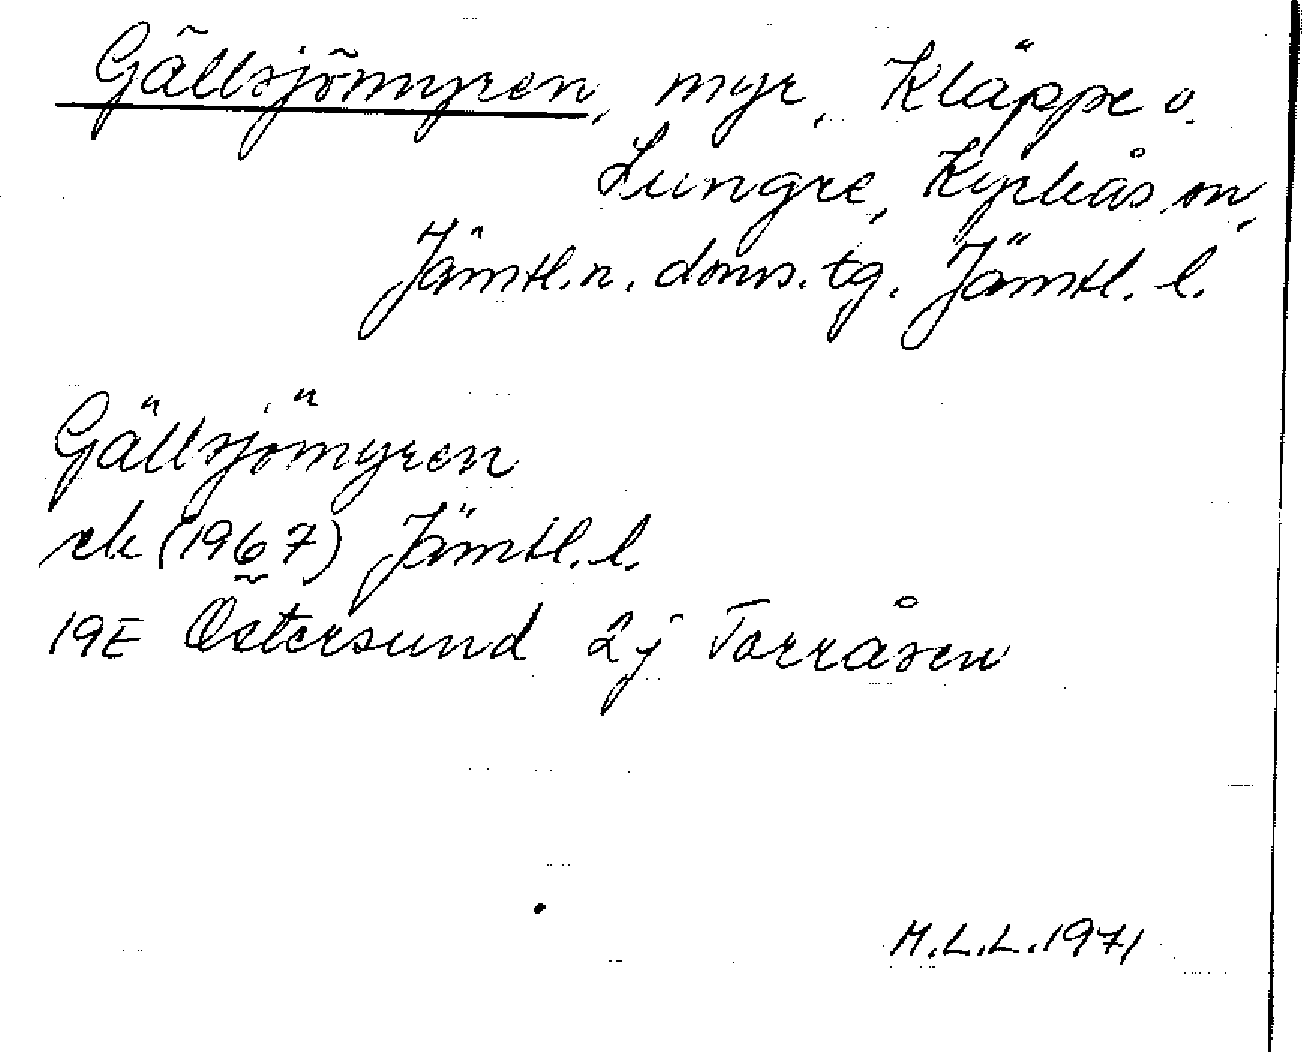 Gällsjömyren, myr, Kläppe o.
Lungre, Kyrkås sn,
Jämtl. n. doms. tg. Jämtl. l.
Gällsjömyren
ek (1967) Jämtl. l.
19E Östersund 2j Torråsen
M.L.L. 1971